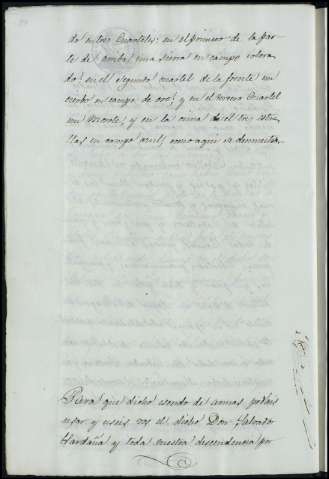 do en tres Quarteles: en el primero de la par-
te de arriba una sierra en campo colora-
do; en el segundo quartel de la frente un
en campo de oro; y en el tercero Quartel
un Monte; y en la cima de el tres estre-
llas en campo azul; como aqui se demuestra.
Para que dicho escudo de armas podais
usar y useis vos el dicho Don Salvador
Hardaña y toda vuestra descendencia por